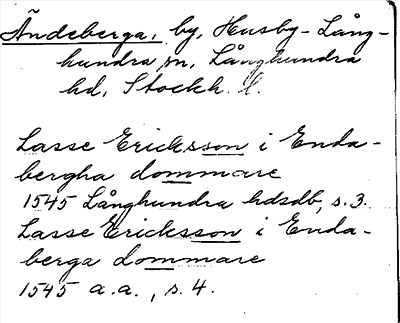 Ändeberga, by, Husby-Lång-
hundra sn, Långhundra
hd, Stockh. l.
Lasse Ericksson i Enda-
bergha dommare
1545 Långhundra hdsdb, s. 3.
Lasse Ericksson i Enda-
berga dommare
1545 a.a., s. 4.